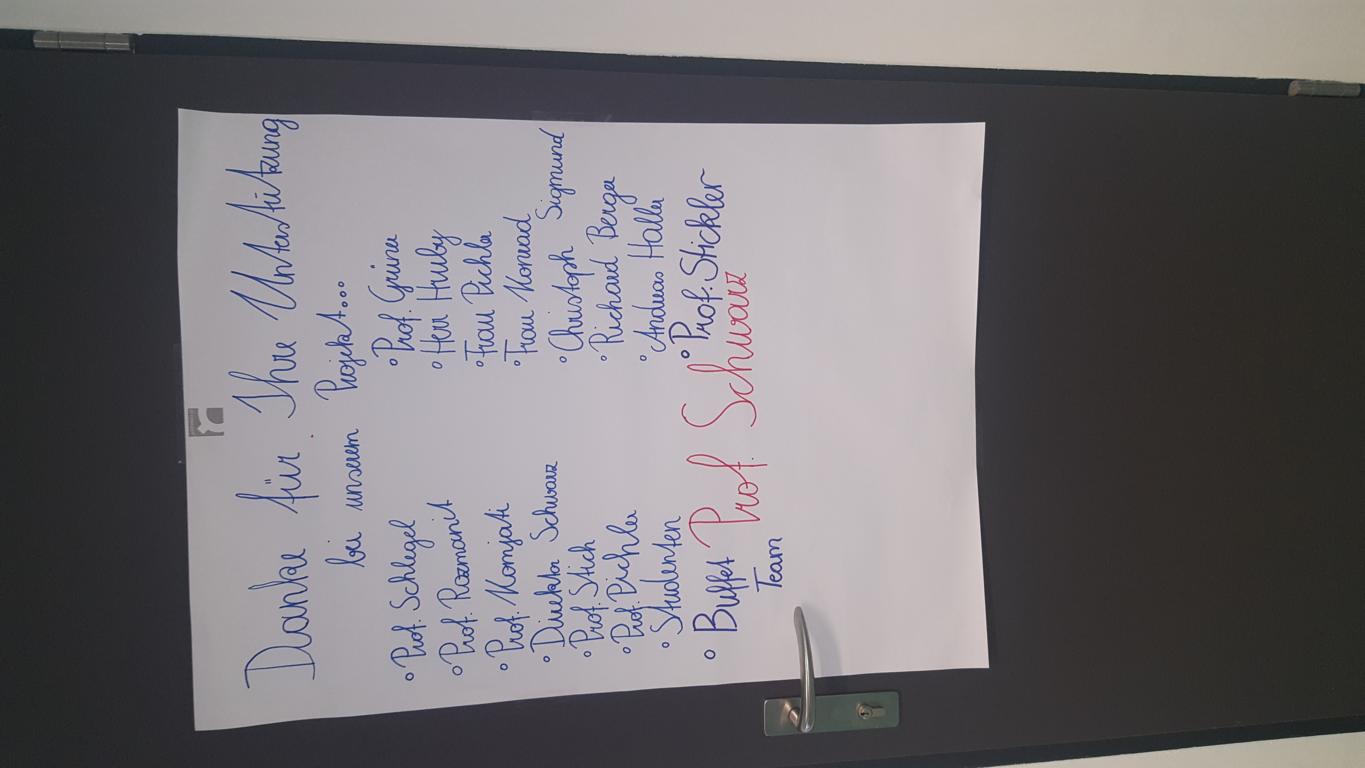 Danke für Ihre Unterstützung
bei unserem Projekt...
° Prof. Schlegel
° Prof. Rozmanit
° Prof. Komjati
° Direktor Schwarz
° Prof. Stich
° Prof. Pichler
° Studenten
° Buffet
Team
° Prof. Grüner
° Herr Hruby
° Frau Pichler
° Frau Konrad
° Christoph Sigmund
° Richard Berger
° Andreas Haller
° Prof. Stickler
Prof. Schwarz